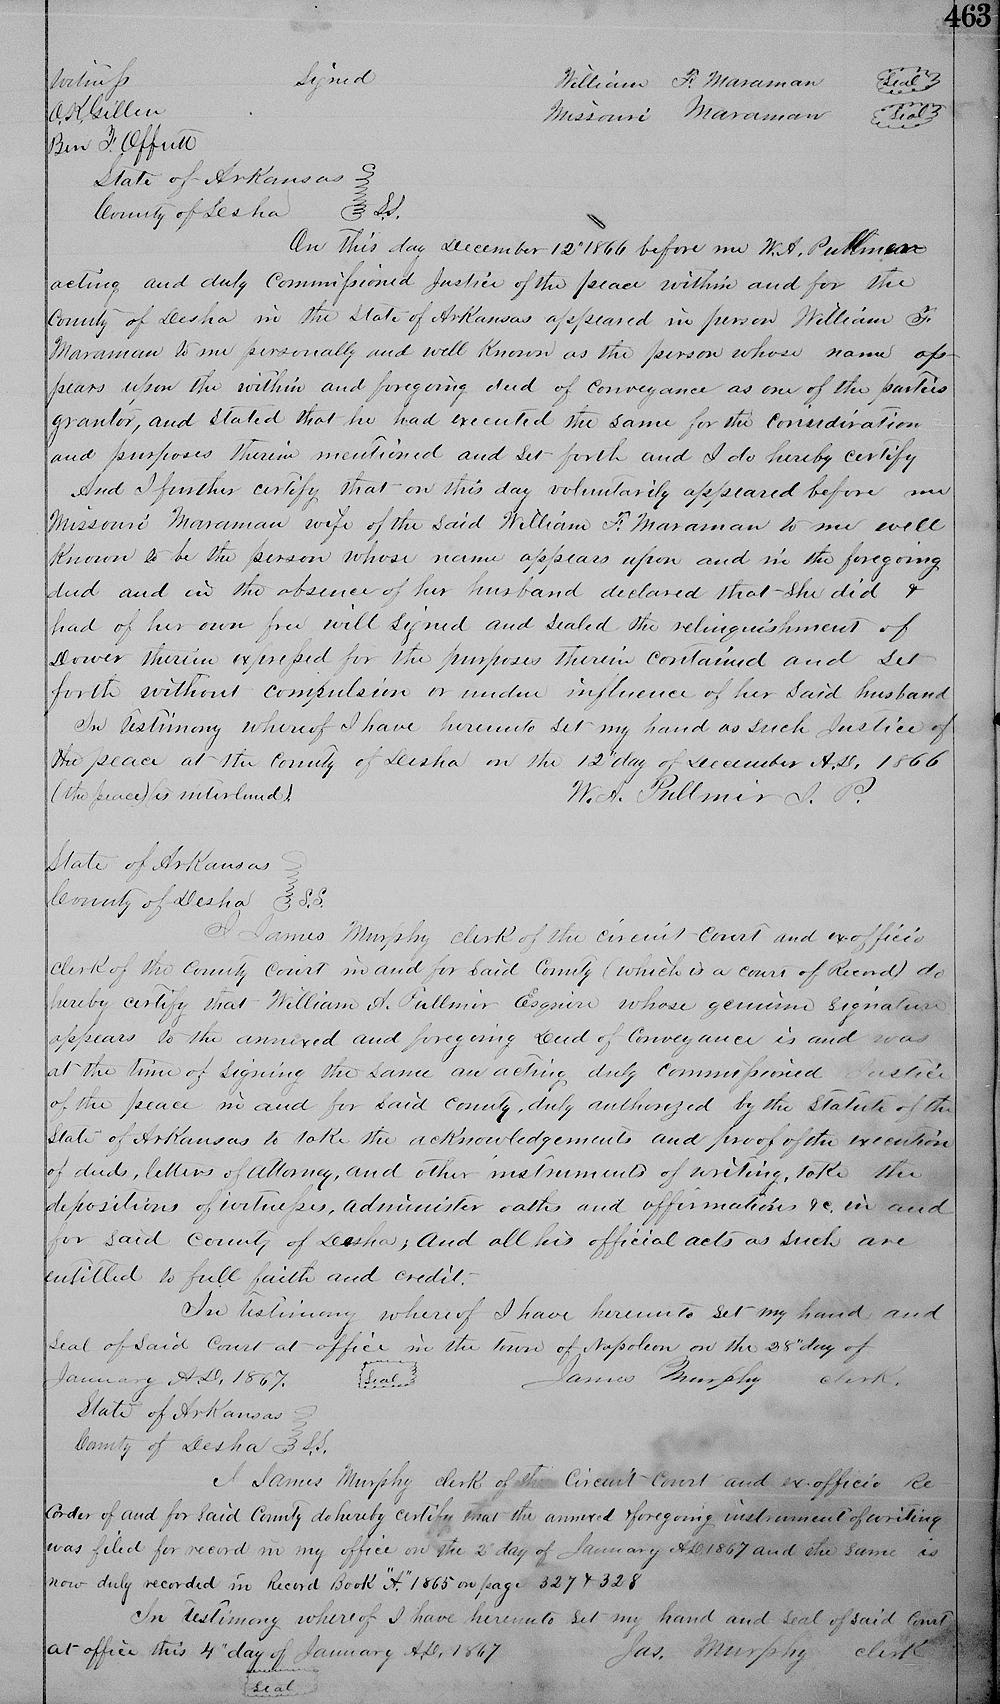 463
Witness Signed William F. Maraman Seal
O. K. Gillen Missouri Maraman Seal
Ben F. Offutt
State of Arkansas
County of Desha S.S.
On this day December 12" 1866 before me W. A. Pullmer
acting and duly Commissioned Justice of the peace within and for the
County of Desha in the State of Arkansas appeared in person William F
Maraman to me personally and well Known as the person whose name ap-
pears upon the within and foregoing deed of conveyance as one of the parties
grantor, and stated that he had executed the same for the consideration
and purposes therein mentioned and set forth and I do hereby certify
And I further certify that on this day voluntarily appeared before me
Missouri Maraman wife of the said William F. Maraman to me well
Known to be the person whose name appears upon and in the foregoing
deed and in the absence of her husband declared that she did &
had of her own free will signed and sealed the relinquishment of
Dower therein expressed for the purposes therein contained and set
forth without compulsion or undue influence of her said husband
In testimony whereof I have hereunto set my hand as such Justice of
the peace at the County of Desha on the 12" day of December A.D. 1866
(the peace) is interlined). W. A. Pullmir J. P.
State of Arkansas
County of Desha S.S.
I James Murphy clerk of the circuit Court and ex-officio
clerk of the County Court in and for said County (which is a court of Record) do
hereby certify that William A. Pullmir Esquire whose genuine signature
appears to the annexed and foregoing Deed of Conveyance is and was
at the time of signing the same an acting duly commissioned Justice
of the peace in and for said County, duly authorized by the Statute of the
State of Arkansas to take the acknowledgements and proof of the execution
of deeds, letters of attorney, and other instruments of writing, take the
depositions of witnesses, administer oaths and affirmations &c. in and
for said County of Desha; And all his official acts as such are
entitled to full faith and credit.
In Testimony whereof I have hereunto set my hand and
seal of said Court at office in the town of Napoleon on the 28" day of
January A.D. 1867. Seal James Murphy clerk.
State of Arkansas
County of Desha S.S.
I James Murphy clerk of the Circuit Court and ex-officio Re
corder of and for said County do hereby certify that the annexed & foregoing instrument of writing
was filed for record in my office on the 2" day of January A.D. 1867 and the same is
now duly recorded in Record Book "A" 1865 on page 327 & 328
In testimony whereof I have hereunto set my hand and seal of said Court
at office this 4" day of January A.D. 1867 Jas. Murphy clerk
Seal